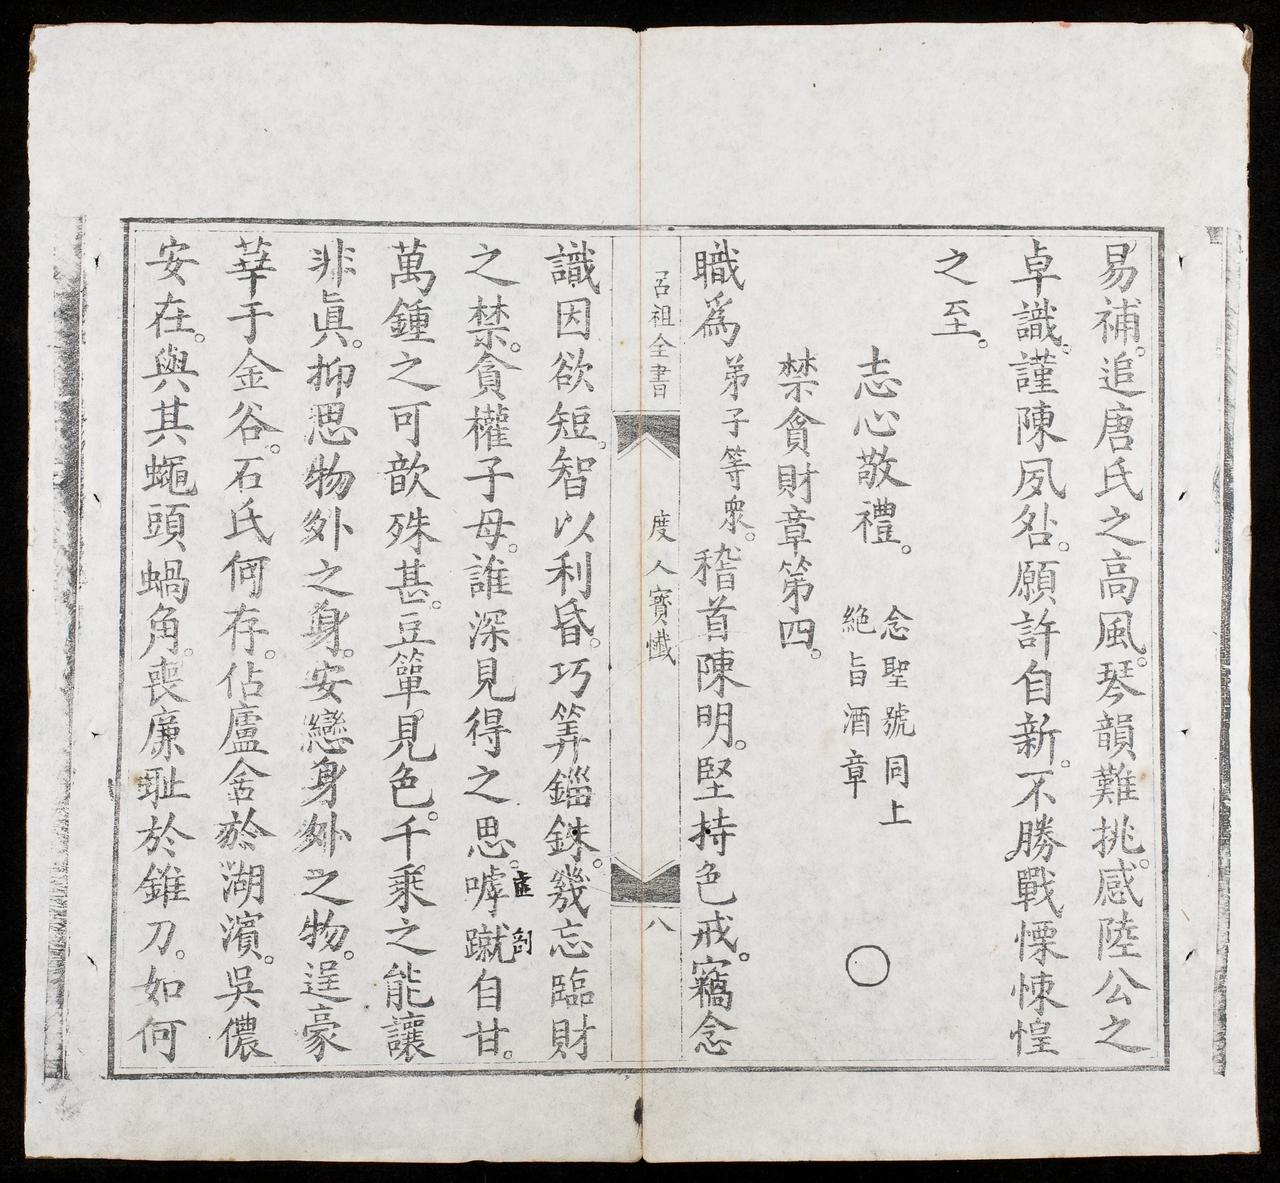 易補。追唐氏之高風。琴韻難挑。感陸公之
卓識。謹陳夙咎。願許自新。不勝戰慄悚惶
之至。
志心敬禮。
念聖號同上
絶旨酒章
〇
禁貪財章第四。
職爲弟子等衆。稽首陳明。堅持色戒。竊念
呂祖全書
度人寶懺
八
識因欲短。智以利昏。巧筭錙銖。幾忘臨財
之禁。貪權子母。誰深見得之思。嘑蹴自甘。
萬鍾之可歆殊甚。豆簞見色。千乘之能讓
非眞。抑思物外之身。安戀身外之物。逞豪
華于金谷。石氏何存。佔廬舍於湖濱。吳儂
安在。與其蠅頭蝸角。喪廉耻於錐刀。如何